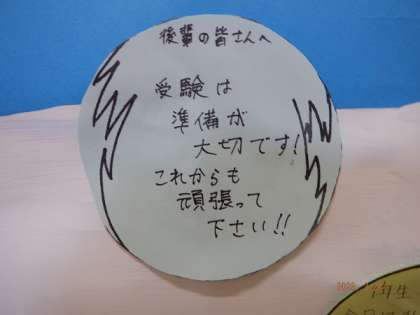 後輩の皆さんへ
受験は
準備が
大切です!
これからも
頑張って
下さい!!
年生